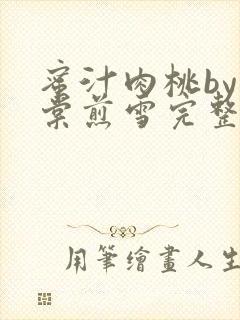 蜜汁肉桃by
棠煎雪完整
用筆繪畫人生